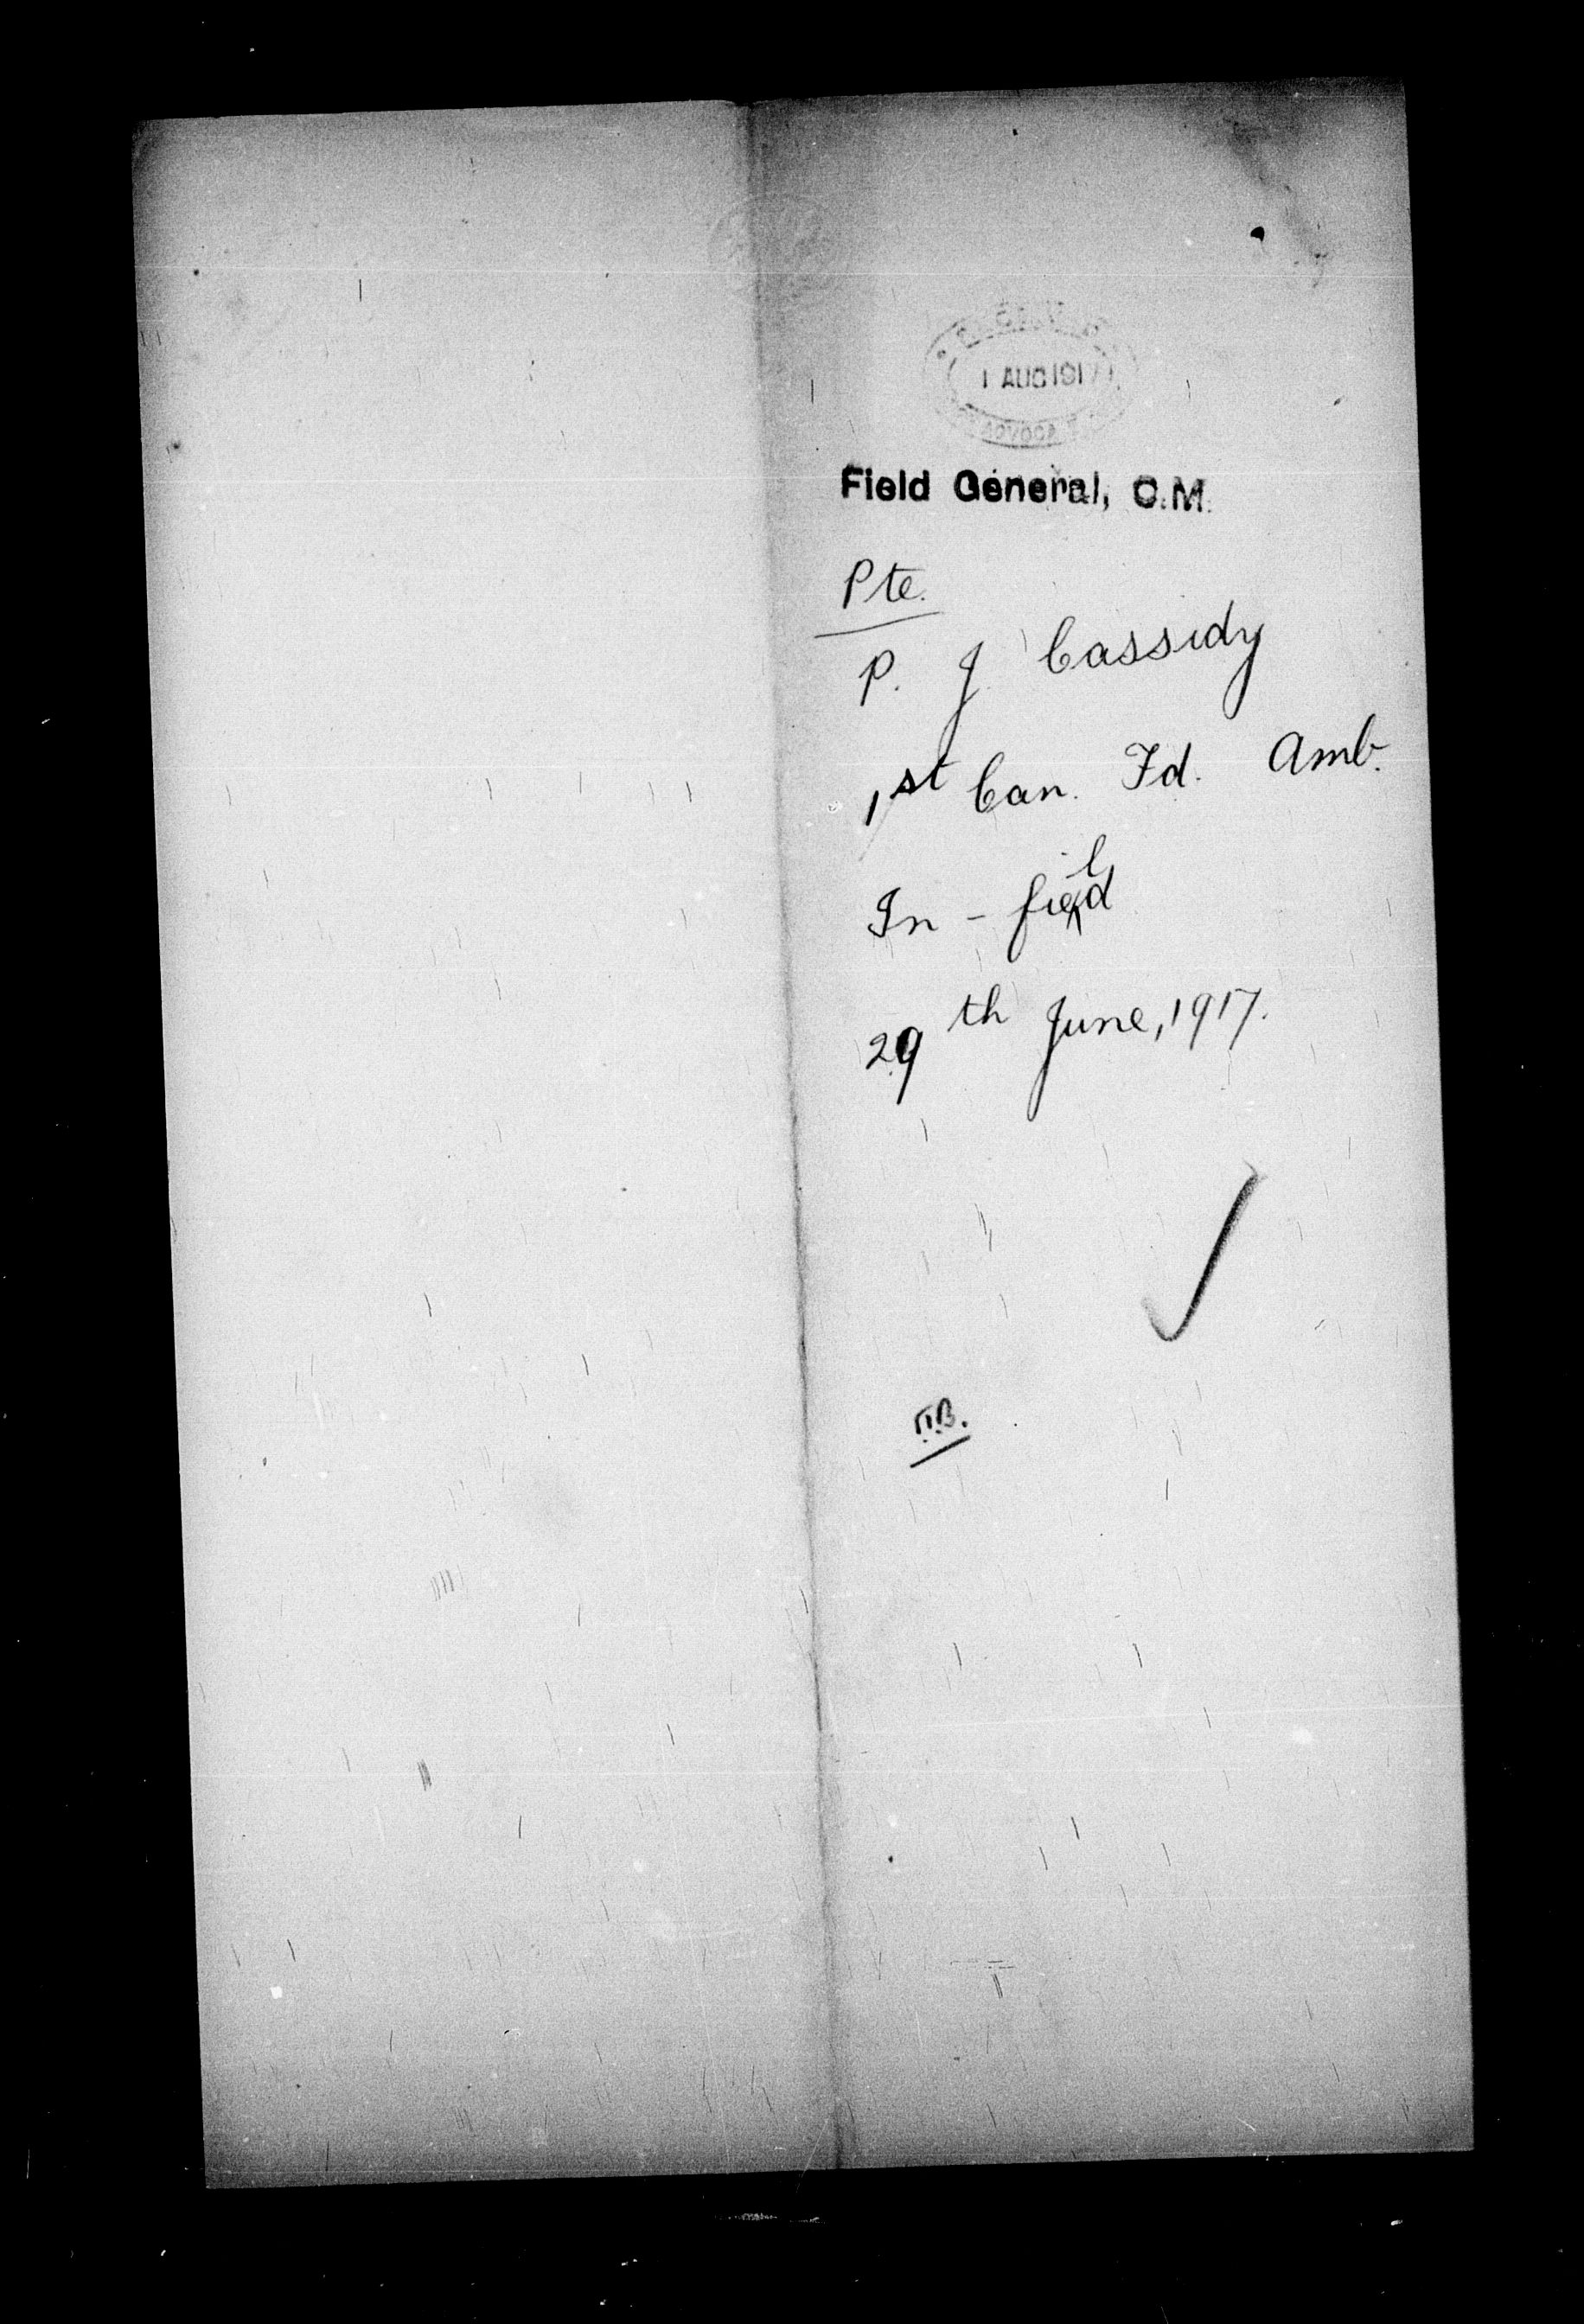 1 AUG 1917
ADVOCA
Field General, C.M.
Pte.
P. J Cassidy
1st Can. Fd. Amb.
In - field
29th June, 1917.